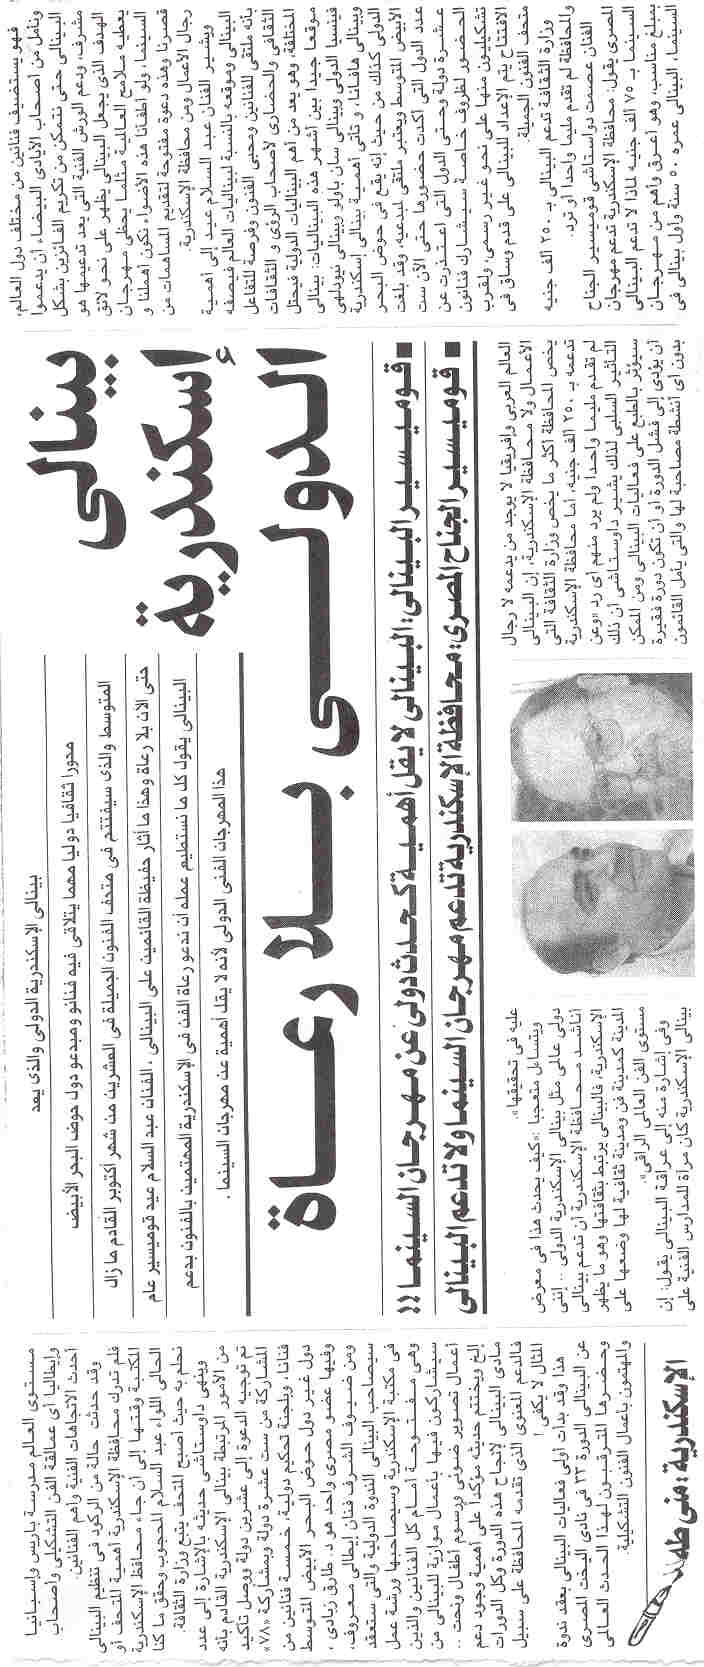 بينالى
أسكندرية
الدولى بلا رعاة
بينالى الإسكندرية الدولى والذى يعد
محورا ثقافيا دوليا مهما يتلاقى فيه فنانو ومبدعو دول حوض البحر الأبيض
المتوسط والذى سيفتتح فى متحف الفنون الجميلة فى العشرين من شهر أكتوبر القادم ما زال
حتى الآن بلا رعاة وهذا ما أثار حفيظة القائمين على البينالى. الفنان عبد السلام عيد قوميسير عام
البينالى يقول كل ما نستطيع عمله أن ندعو رعاة الفن فى الإسكندرية المهتمين بالفنون بدعم
هذا المهرجان الفنى الدولى لأنه لا يقل أهمية عن مهرجان السينما.
■ قوميسير البينالى: البينالى لا يقل أهمية كحدث دولى عن مهرجان السينما!!
■ قوميسير الجناح المصرى: محافظة الإسكندرية تدعم مهرجان السينما ولا تدعم البينالى
فهو يستضيف فنانين من مختلف دول العالم,
ونأمل من أصحاب الأيادى البيضاء أن يدعموا
البينالى حتى نتمكن من تكريم الفائزين بشكل
مشرف، ودعم الورش الفنية التى يعد تدعيمها هو
الهدف الذى يجعل البينالى يظهر على نحو لائق
يعطيه ملامح العالمية مثلما يحظى مهرجان
السينما، ولو أطفأنا هذه الأضواء نكون أهملنا و
قصرنا وهذه دعوة مفتوحة لتقديم المساهمات من
رجال الأعمال ومن محافظة الإسكندرية.
ويشير الفنان عبد السلام عيد إلى أهمية
البينالى وموقعه بالنسبة لبيناليات العالم فيصفه
بأنه ملتقى للفنانين ومحبى الفنون وفرصة للتفاعل
الثقافى والحضارى لأصحاب الرؤى و الثقافات
المختلفة، وهو يعد من أهم البيناليات الدولية فيحتل
موقعا جيدا بين أشهر هذه البيناليات: بينالى
فينسيا الدولى وبينالى سان باولو وبينالى نيودلهى
وبينالى هافانا، و تأتى أهمية بينالى إسكندرية
الدولى كذلك من حيث إنه يقع فى حوض البحر
الأبيض المتوسط ويعتبر ملتقى لمبدعيه، وقد بلغت
عدد الدول التى أكدت حضورها حتى الآن ست
عشرة دولة وحتى الدول التى اعتذرت عن
الحضور لظروف خاصة سيشارك فنانون
تشكيليون منها على نحو غير رسمى، ولقرب
الافتتاح يتم الإعداد للبينالى على قدم وساق فى
متحف الفنون الجميلة
وزارة الثقافة تدعم البينالى بـ ٢٥٠ ألف جنيه
والمحافظة لم تقدم مليما واحدا و ترد.
الفنان عصمت داوستاشى قوميسير الجناح
المصرى يقول: محافظة الإسكندرية تدعم مهرجان
السينما بـ ٧٥ الف جنيه لماذا لا تدعم البينالى
بمبلغ مناسب، وهو أعرق وأهم من مهرجان
السينما، البينالى عمره ٥٠ سنة وأول بينالى فى
العالم العربى وإفريقيا لا يوجد من يدعمه لا رجال
الأعمال ولا محافظة الإسكندرية، إن البينالى
يخص المحافظة أكثر ما يخص وزارة الثقافة التى
تدعمه بـ ٢٥٠ ألف جنيه. أما محافظة الإسكندرية
لم تقدم مليما واحدا ولم يرد منهم أى رد «وعن
التأثير السلبى لذلك يشير داوستاشى أن ذلك
سيؤثر بالطبع على فعاليات البينالى ومن الممكن
أن يؤدى إلى فشل الدورة أو ان تكون دورة فقيرة
بدون أى أنشطة مصاحبة لها والتى يأمل القائمون
عليه فى تحقيقها».
ويتساءل متعجبا: «كيف يحدث هذا فى معرض
دولى عالمى مثل بينالى الإسكندرية الدولى .. إننى
أناشد محافظة الإسكندرية أن تدعم بينالى
الإسكندرية فالبينالى يرتبط بثقافتها وهو ما يظهر
المدينة كمدينة فن ومدينة ثقافية لها وضعها على
مستوى الفن العالمى الراقى».
وفى إشارة منه إلى عراقة البينالى يقول: إن
بينالى الإسكندرية كان مرآة للمدارس الفنية على
مستوى العالم مدرسة باريس واسبانيا
وإيطاليا أى عمالقة الفن التشكيلى وأصحاب
أحدث الاتجاهات الفنية وأهم الفنانين.
وقد حدثت حالة من الركود فى تنظيم البينالى
فلم تدرك محافظة الإسكندرية أهمية المتحف أو
المكتبة وقتها إلى أن جاء محافظ الإسكندرية
الحالى اللواء عبد السلام المحجوب وحقق ما كنا
نحلم به حيث أصبح المتحف يتبع وزارة الثقافة.
وينهى داوستاشى حديثه بالإشارة إلى عدد
من الأمور المرتبطة بينالى الإسكندرية القادم بأنه
تم توجيه الدعوة إلى عشرين دولة ووصل تأكيد
المشاركة من ست عشرة دولة وبمشاركة «٧٨»
فنانا، وبلجنة تحكيم دولية: خمسة فنانين من
دول غير دول حوض البحر الأبيض المتوسط
وفيها عضو مصرى واحد هو د. طارق زبادى،
ومن ضيوف الشرف فنان إيطالى معروف،
سيصاحب البينالى الندوة الدولية والتى ستنعقد
فى مكتبة الإسكندرية وسيصاحبها ورشة عمل
وهى مفتوحة أمام كل الفنانين والذين
سيشاركون فيها بأعمال موازية للبينالى من
أعمال تصوير ضوئى ورسوم أطفال ونحت ..
إلخ ويختتم حديثه مؤكدا على أهمية وجود دعم
مادى للبينالى لإنجاح هذه الدورة وكل الدورات
فالدعم المعنوى الذى تقدمه المحافظة على سبيل
المثال لا يكفى!
هذا وقد بدأت أولى فعاليات البينالى بعقد ندوة
عن البينالى الدورة ٢٣ فى نادى اليخت المصرى
وحضرها المترقبون لهذا الحدث العالمى
والمهتمون بأعمال الفنون التشكيلية.
الإسكندرية: منى طه